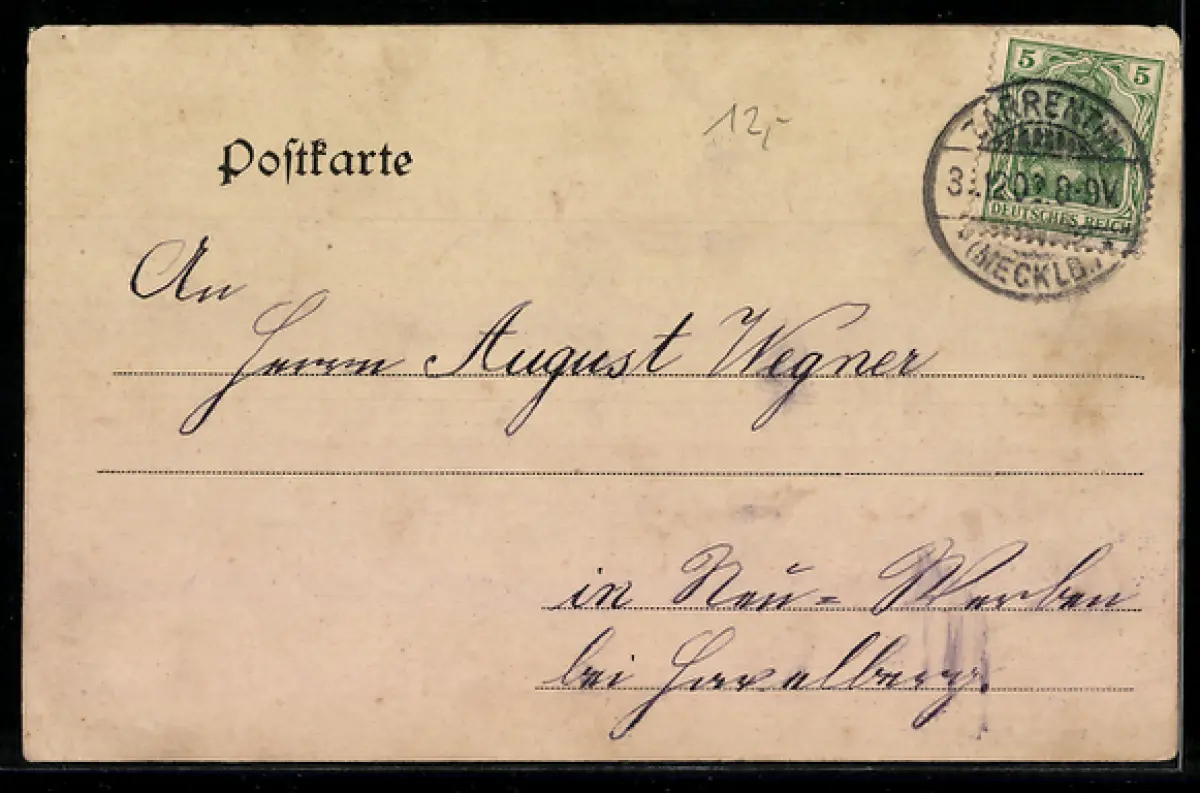 5 5
12,-
ZARRENTIN
Postkarte
12.02 8-9V.
DEUTSCHES REICH
(MECKLB.)
An
Herrn August Wegner
in Neu-Werben
bei Havelberg.